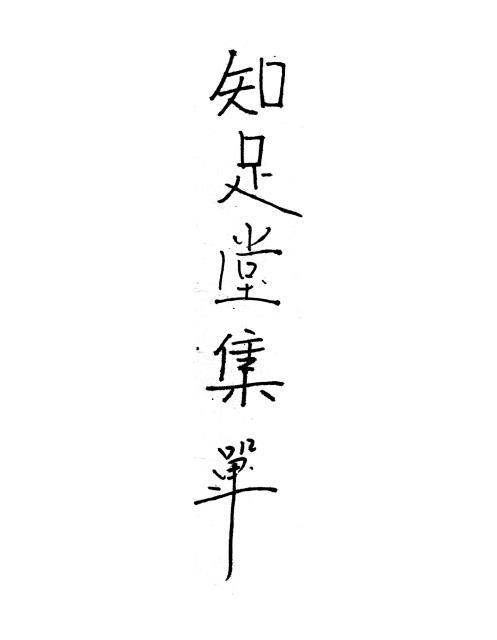 知足堂集單